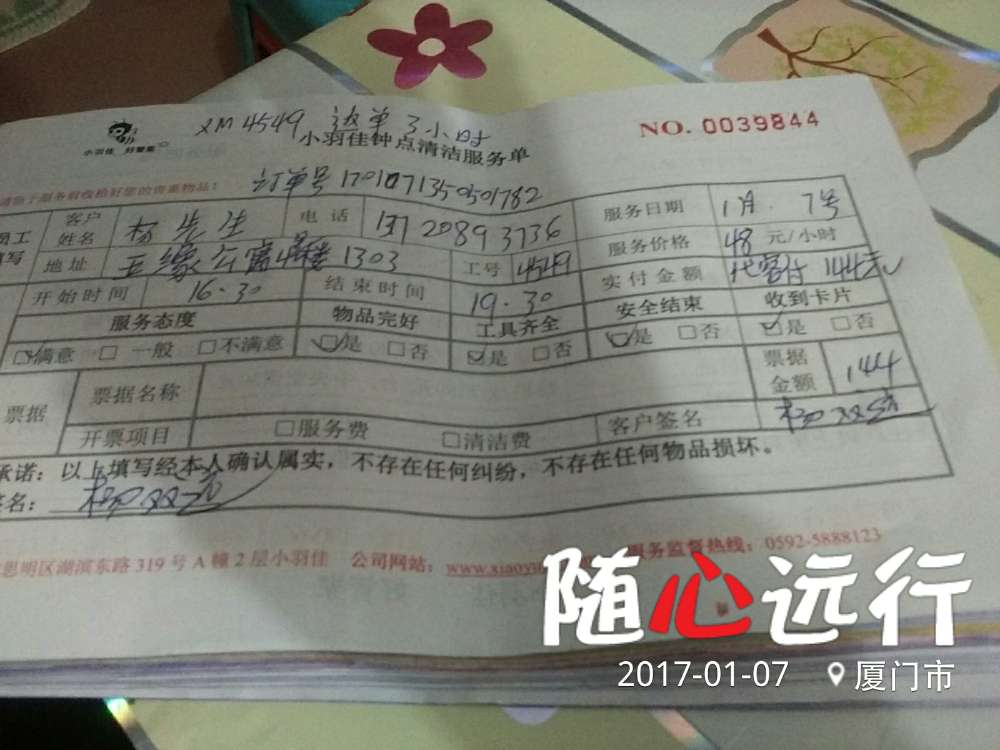 XM4549 这单3小时
小羽佳 好管家
小羽佳钟点清洁服务单
NO. 0039844
请您于服务前收检好您的贵重物品!
订单号
员工填写 客户姓名 杨先生 电话 服务日期 1月 7号
地址 1303 工号 4549 服务价格 48 元/小时
开始时间 16.30 结束时间 19.30 实付金额 代客付 144元
服务态度 物品完好 工具齐全 安全结束 收到卡片
☑满意 □一般 □不满意 ☑是 □否 ☑是 □否 ☑是 □否 ☑是 □否
票据 票据名称 票据金额 144
开票项目 □服务费 □清洁费 客户签名
承诺:以上填写经本人确认属实,不存在任何纠纷,不存在任何物品损坏。
签名:
思明区湖滨东路 319 号 A 幢 2 层小羽佳 公司网站: 服务监督热线:0592-5888123
随心远行
2017-01-07 厦门市